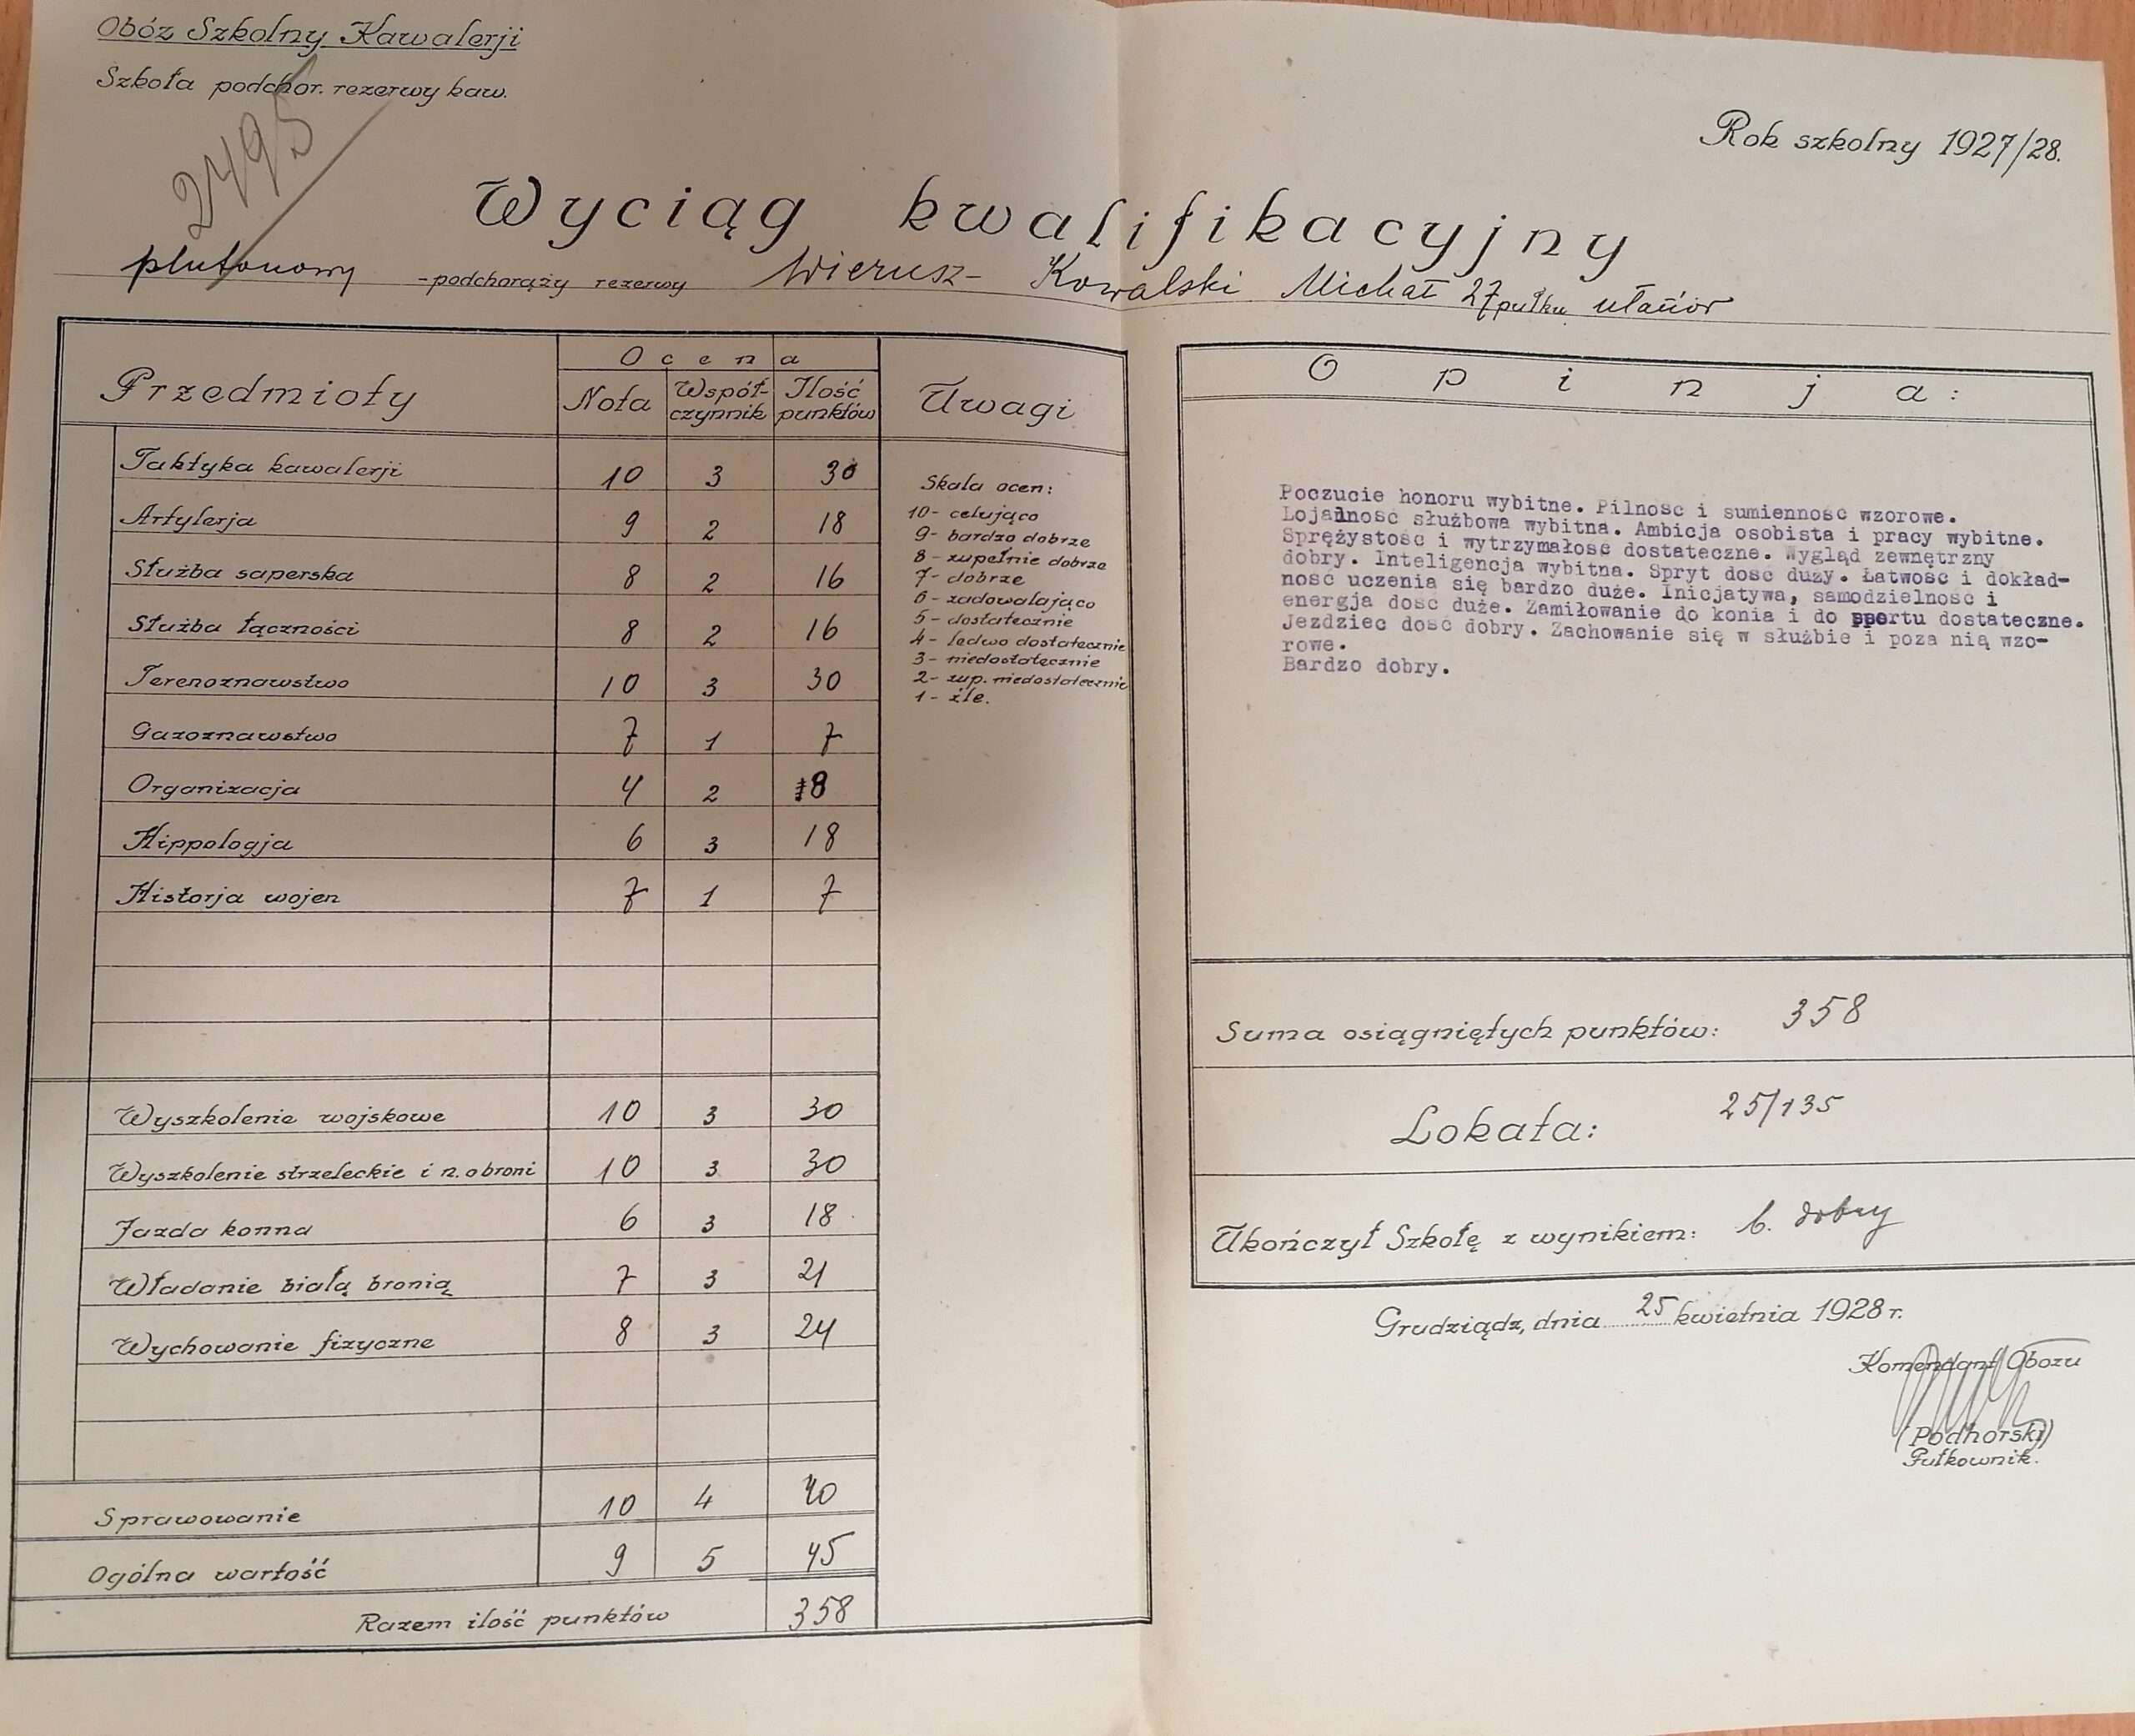 Obóz Szkolny Kawalerji
Szkoła podchor. rezerwy kaw.
2495
Rok szkolny 1927/28.
Wyciąg kwalifikacyjny
plutonowy -podchorąży rezerwy Wierusz- Kowalski Michał 27 pułku ułanów
Przedmioty
Ocena
Nota
Współ-
czynnik
Ilość
punktów
Uwagi
Taktyka kawalerji 10 3 30
Artylerja 9 2 18
Służba saperska 8 2 16
Służba łączności 8 2 16
Terenoznawstwo 10 3 30
Gazoznawstwo 7 1 7
Organizacja 4 2 8
Hippologja 6 3 18
Historja wojen 7 1 7
Wyszkolenie wojskowe 10 3 30
Wyszkolenie strzeleckie i n. o broni 10 3 30
Jazda konna 6 3 18
Władanie białą bronią 7 3 21
Wychowanie fizyczne 8 3 24
Sprawowanie 10 4 40
Ogólna wartość 9 5 45
Razem ilość punktów 358
Skala ocen:
10- celująco
9- bardzo dobrze
8- zupełnie dobrze
7- dobrze
6- zadowalająco
5- dostatecznie
4- ledwo dostatecznie
3- niedostatecznie
2- zup. niedostatecznie
1- źle.
Opinja:
Poczucie honoru wybitne. Pilność i sumienność wzorowe.
Lojalność służbowa wybitna. Ambicja osobista i pracy wybitne.
Sprężystość i wytrzymałość dostateczne. Wygląd zewnętrzny
dobry. Inteligencja wybitna. Spryt dość duży. Łatwość i dokład-
ność uczenia się bardzo duże. Inicjatywa, samodzielność i
energja dość duże. Zamiłowanie do konia i do sportu dostateczne.
Jeździec dość dobry. Zachowanie się w służbie i poza nią wzo-
rowe.
Bardzo dobry.
Suma osiągniętych punktów: 358
Lokata: 25/135
Ukończył Szkołę z wynikiem: b. dobry
Grudziądz, dnia 25 kwietnia 1928 r.
Komendant Obozu
(Podhorski)
Pułkownik.